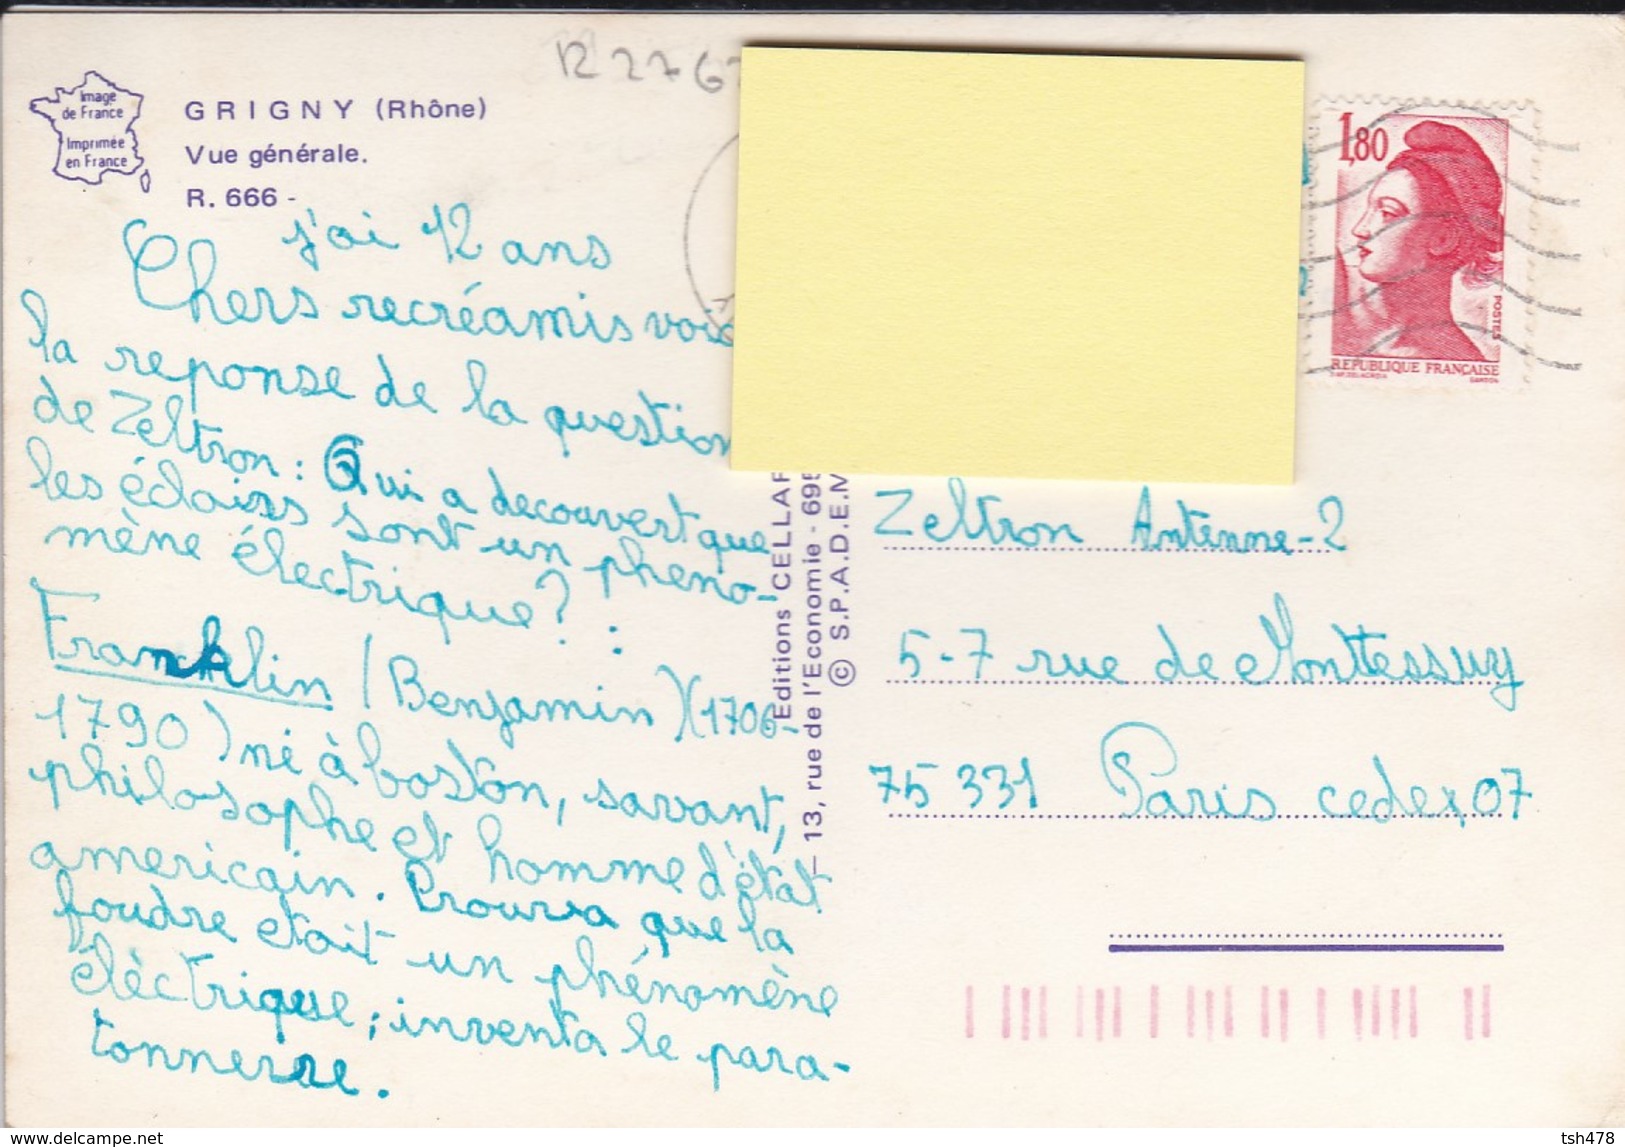 R 2276
Image
de France
Imprimée
en France
GRIGNY (Rhône)
Vue générale.
R. 666 -
j'ai 12 ans
Chers recréamis voic
la reponse de la question
de Zeltron : Qui a decouvert que
les éclairs sont un pheno-
mène électrique ? :
Franklin (Benjamin)(1706-
1790) né à boston, savant,
philosophe et homme d'état
americain. Prouva que la
foudre etait un phénomène
électrique; inventa le para-
tonnerre.
Editions CELLAR
13, rue de l'Economie - 695
© S.P.A.D.E.M
1,80
POSTES
REPUBLIQUE FRANÇAISE
Zeltron Antenne-2
5-7 rue de Monttessuy
75 331 Paris cedex 07
www.delcampe.net
tsh478